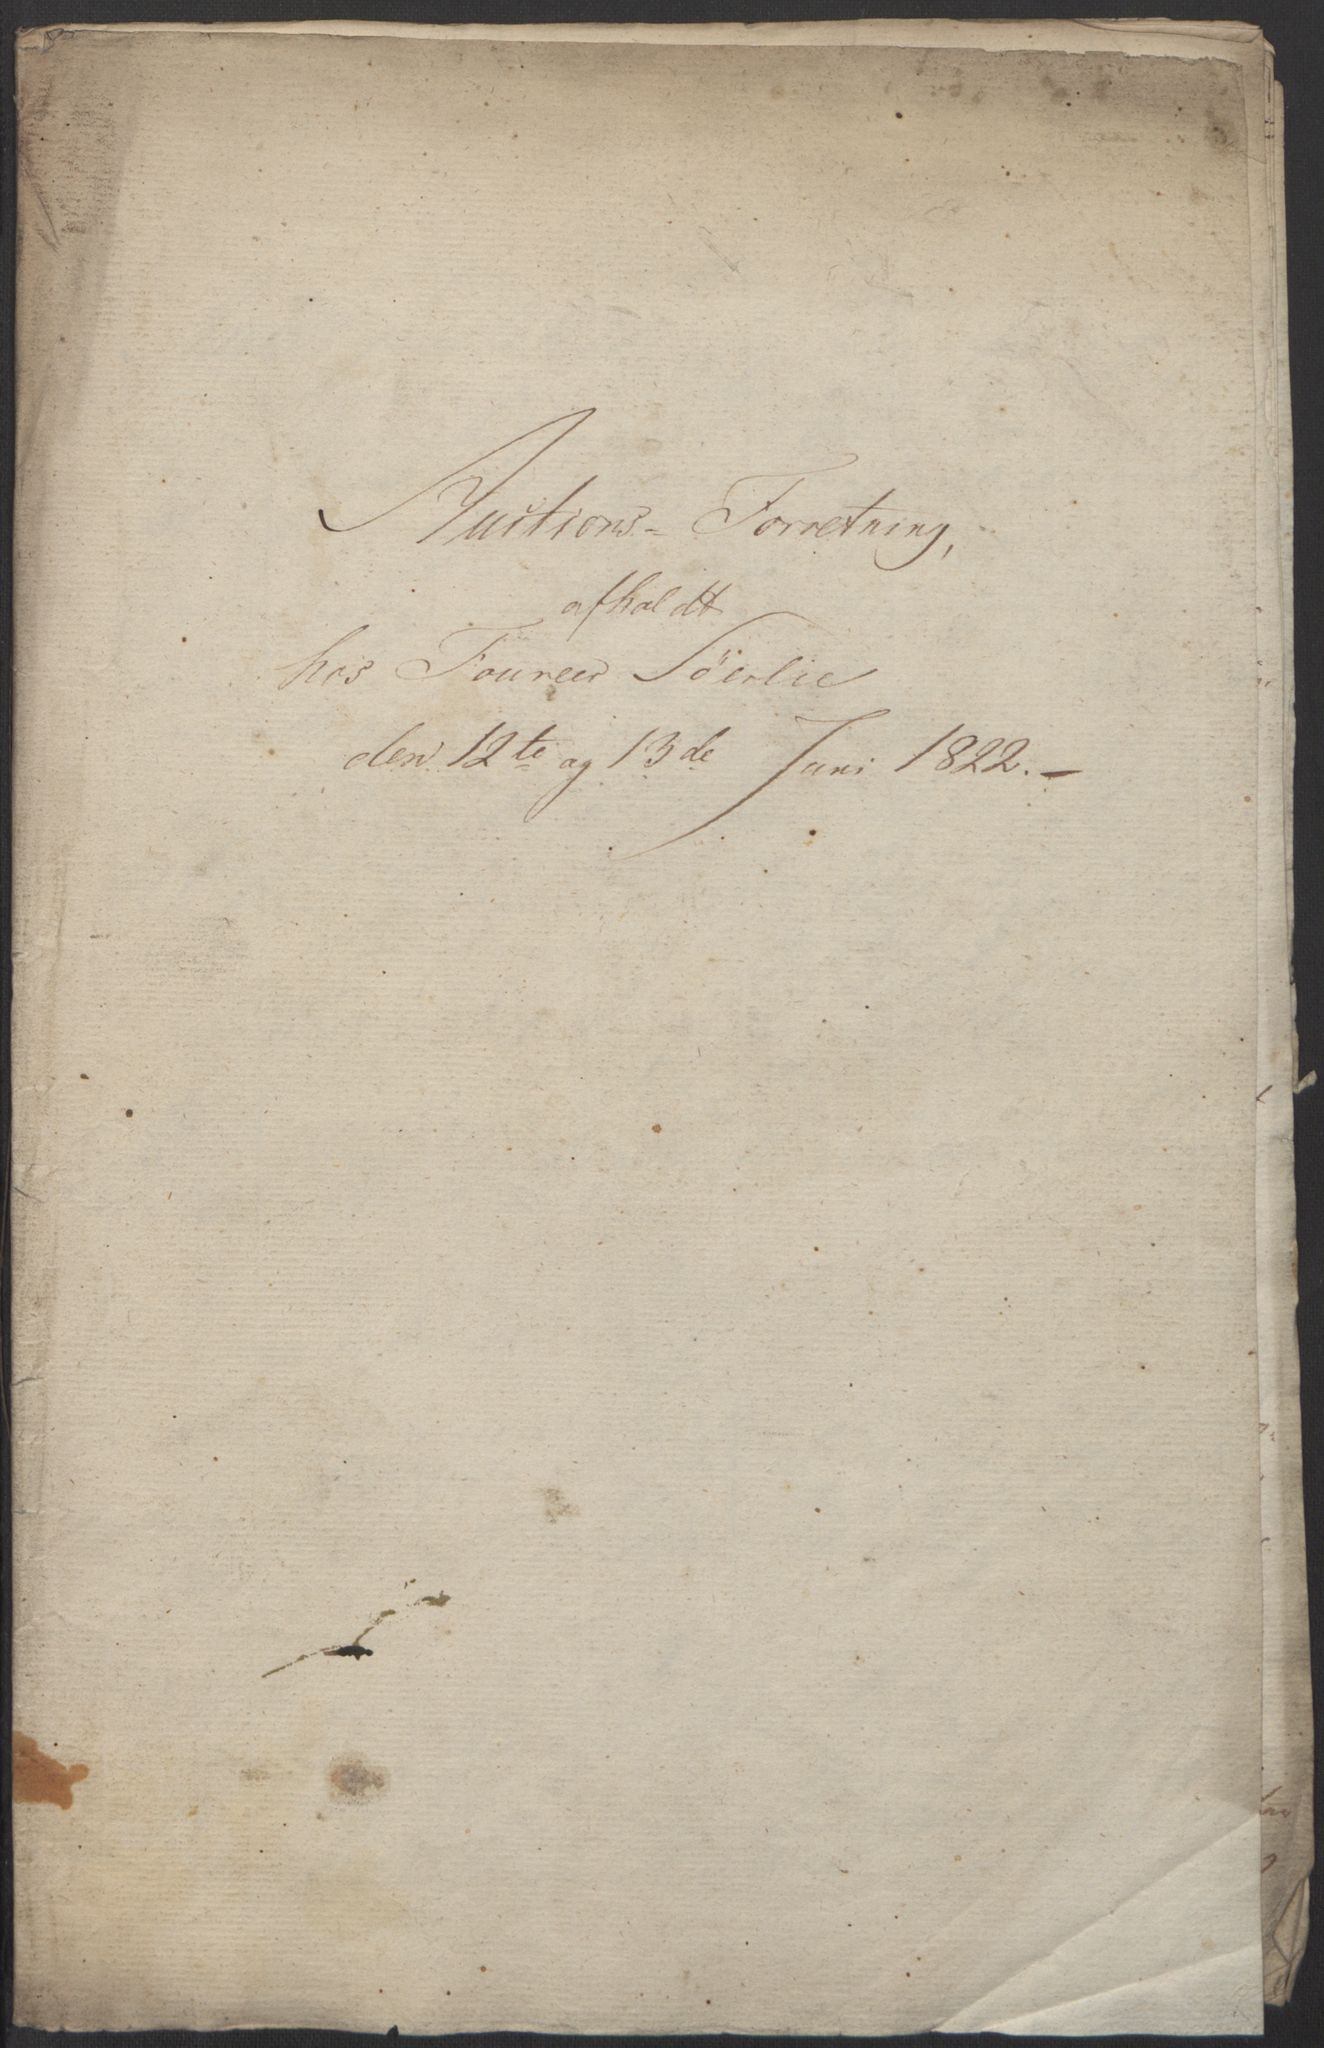 Auctions- Forretning,
afholdt
hos Foureer Söerlie
den 12te og 13de Juni 1822. –